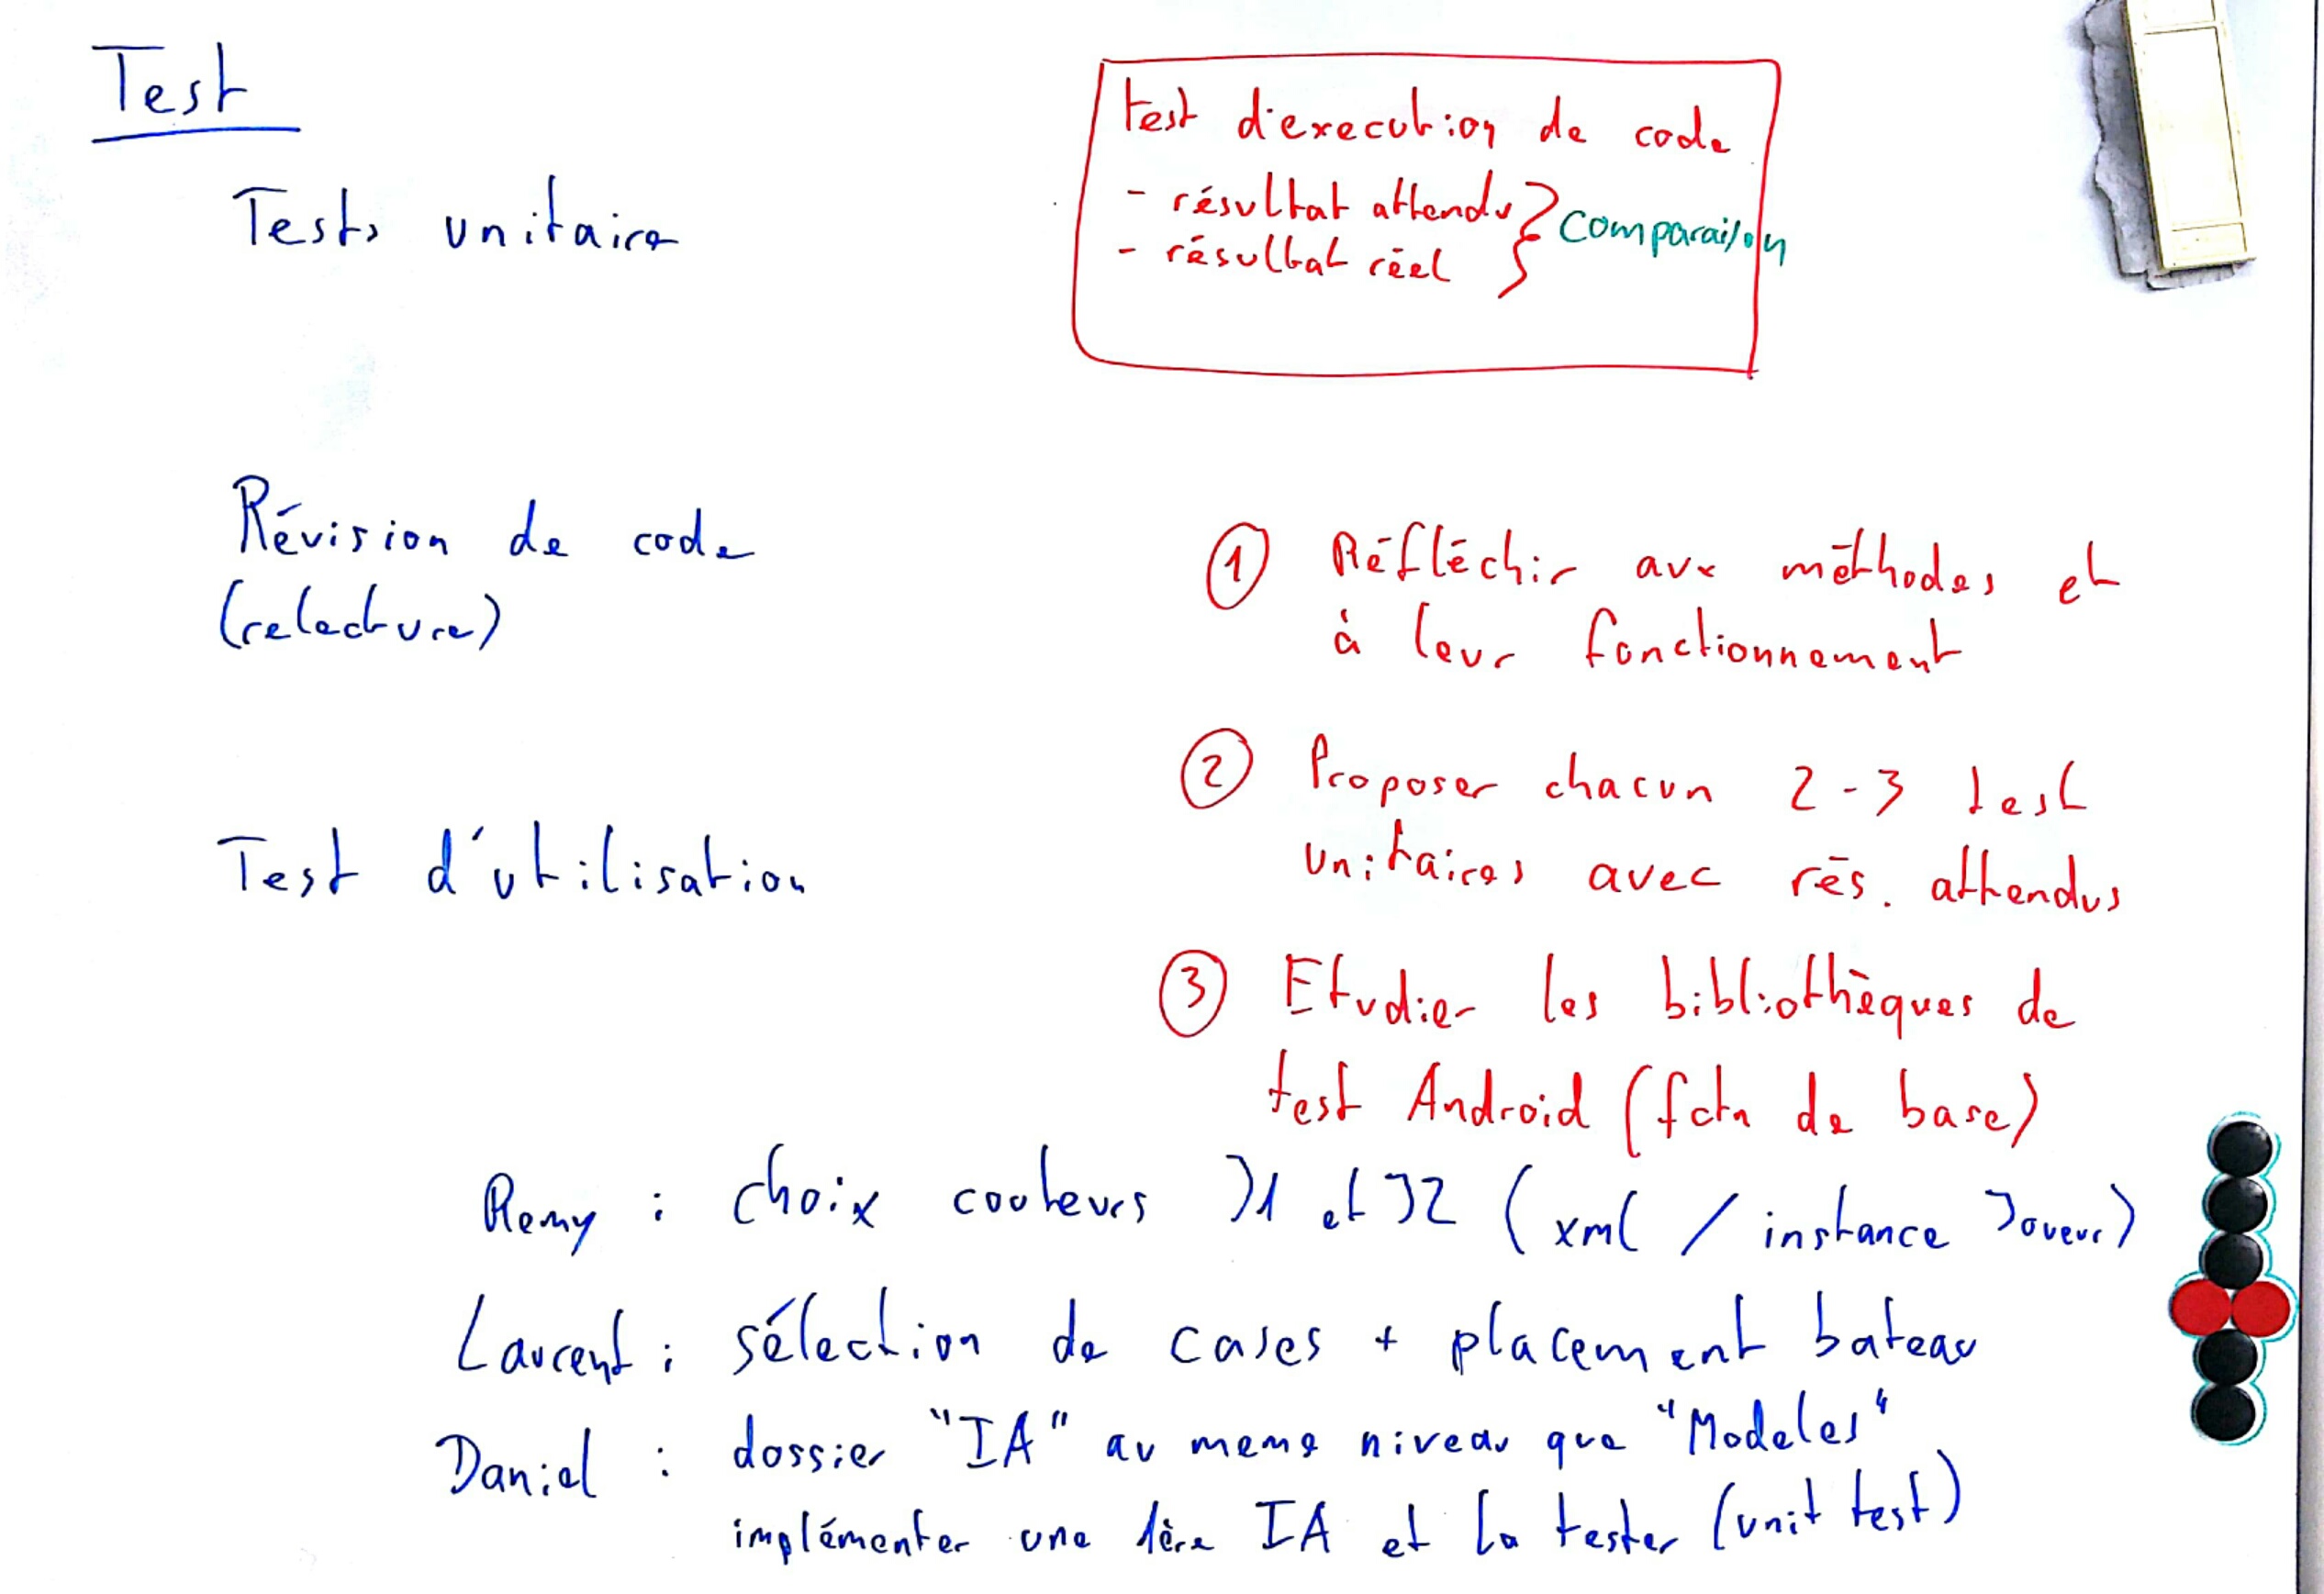 Test
Tests unitaire
test d'execution de code
- résultat attendu
- résultat réel
comparaison
Révision de code
(relecture)
Test d'utilisation
1 Réfléchir aux méthodes et
à leur fonctionnement
2 Proposer chacun 2-3 test
unitaires avec rés. attendus
3 Etudier les bibliothèques de
test Android (fctn de base)
Remy : choix couleurs J1 et J2 (xml / instance Joueur)
Laurent : sélection de cases + placement bateau
Daniel : dossier "IA" au meme niveau que "Modeles"
implémenter une 1ère IA et la tester (unit test)